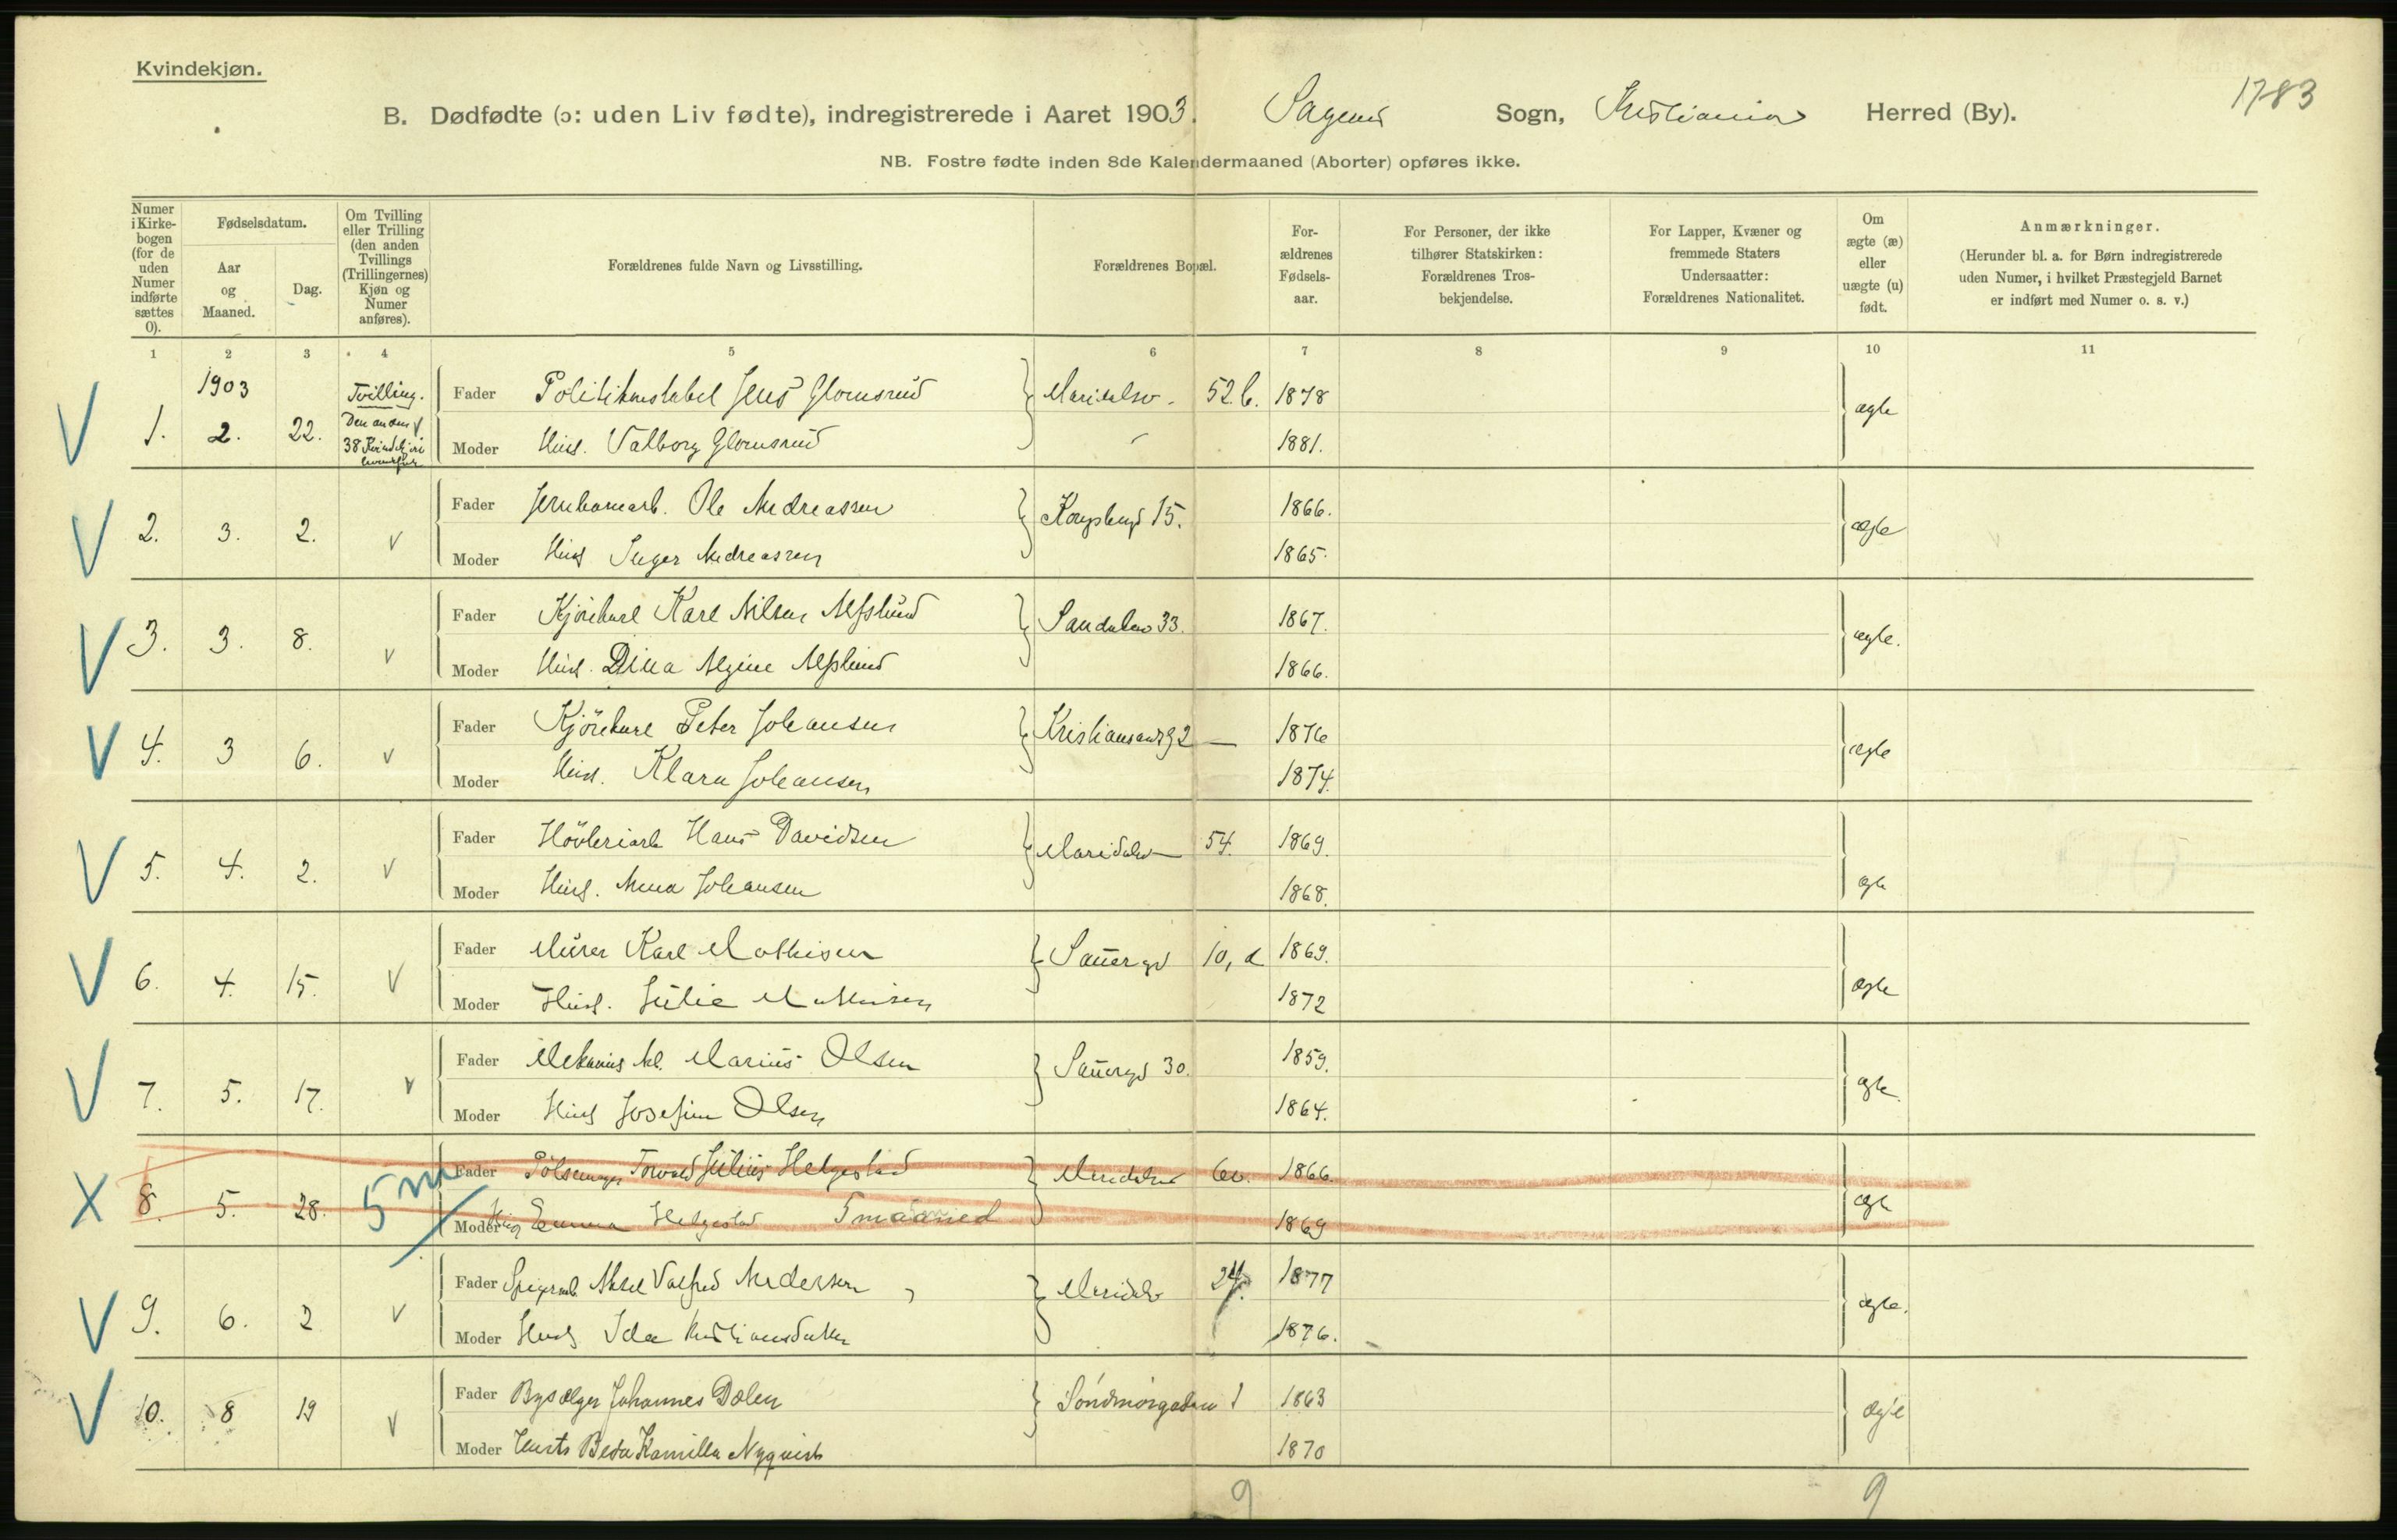 Kvindekjøn.
1783
B. Dødfødte (ɔ: uden Liv fødte), indregistrerede i Aaret 1903. Sagene Sogn, Kristiania Herred (By).
NB. Fostre fødte inden 8de Kalendermaaned (Aborter) opføres ikke.
Numer i Kirke-bogen (for de uden Numer indførte sættes 0).
Fødselsdatum.
Aar og Maaned.
Dag.
Om Tvilling eller Trilling (den anden Tvillings (Trillingernes) Kjøn og Numer anføres).
Forældrenes fulde Navn og Livsstilling.
Forældrenes Bopæl.
For-ældrenes Fødsels-aar.
For Personer, der ikke tilhører Statskirken: Forældrenes Tros-bekjendelse.
For Lapper, Kvæner og fremmede Staters Undersaatter: Forældrenes Nationalitet.
Om ægte (æ) eller uægte (u) født.
Anmærkninger.
(Herunder bl. a. for Børn indregistrerede uden Numer, i hvilket Præstegjeld Barnet er indført med Numer o. s. v.)
1 2 3 4 5 6 7 8 9 10 11
1903 Tvilling. Fader Politikonstabel Jens Glomsrud 52 b. 1878 ægte
1. 2. 22. Den anden 38 Moder Hust. Valborg Glomsrud 1881.
Fader Ole Andreassen 15. 1866.
2. 3. 2. Moder Hust Inger Andreassen 1865. ægte
Fader Kjørekarl Karl Nilsen 33. 1867.
3. 3. 8. Moder Hust. Dina 1866. ægte.
Fader Kjörekarl Peter Johansen Kristiansandsg 2 1876
4. 3 6. Moder Hust. Klara Johansen 1874. ægte
Fader Høvleriarb Hans Davidsen Maridalsv 54. 1869.
5. 4. 2. Moder Hust. Anna Johansen 1868. ægte
Fader Murer Karl Mathisen 10, 1869.
6. 4. 15. Moder Hust. Julie Mathisen 1872 ægte
Fader Marius Olsen 30. 1859.
7. 5. 17. Moder Hust Josefine Olsen 1864. ægte.
Fader Pølsemager Torvald Julius Helgestad Maridalsv 1866.
8. 5. 28. 5 m Moder Hust Emma Helgestad 5 maaned 1869 ægte
Fader Aksel Valfred Andersen Maridalsv 24. 1877
9. 6. 2 Moder Hust Ida Kristiansdatter 1876. ægte.
Fader Johannes Dalen Söndmörgaden 1 1863
10. 8 19 Moder Beda Kamilla Nyqvist 1870 ægte
9 9